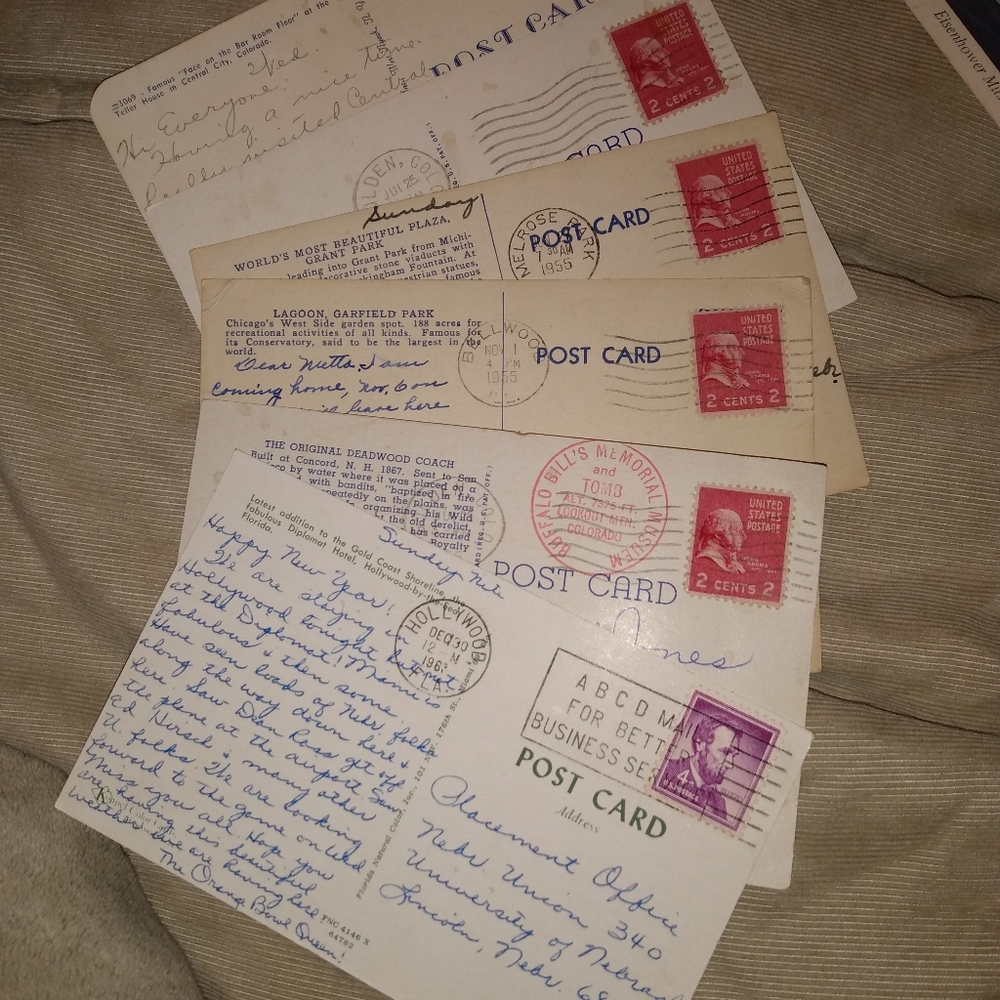 #3069 - Famous "Face on the Bar Room Floor" at the
Teller House in Central City, Colorado.
Hi Everyone.
Having a nice time.
visited Central
POST CAR
UNITED
STATES
POSTAGE
2 CENTS 2
GOLDEN, COLO
JUL 25
CARD
Sunday
WORLD'S MOST BEAUTIFUL PLAZA,
GRANT PARK
leading into Grant Park from Michi-
decorative stone viaducts with
kingham Fountain. At
estrian statues,
famous
MELROSE PARK
7 30 AM
1955
POST CARD
UNITED
STATES
POSTAGE
2 CENTS 2
LAGOON, GARFIELD PARK
Chicago's West Side garden spot. 188 acres for
recreational activities of all kinds. Famous for
its Conservatory, said to be the largest in the
world.
Dear Netta, I am
coming home, Nov. 6 on
leave here
BELLWOOD
NOV 1
4 PM
1955
POST CARD
UNITED
STATES
POSTAGE
JOHN ADAMS
2 CENTS 2
THE ORIGINAL DEADWOOD COACH
Built at Concord, N. H. 1867. Sent to San
isco by water where it was placed on a
with bandits, "baptized in fire
epeatedly on the plains, was
organizing his Wild
the old derelict,
has carried
Royalty
BUFFALO BILL'S MEMORIAL MUSUEM
and
TOMB
ALT. 7375 FT.
LOOKOUT MTN.
COLORADO
POST CARD
UNITED
STATES
POSTAGE
2 CENTS 2
Jones
Latest addition to the Gold Coast Shoreline, the
fabulous Diplomat Hotel, Hollywood-by-the-Sea,
Florida.
Sunday Nite
Happy New Year!
We are staying in
Hollywood tonight but not
at the Diplomat! Miami is
fabulous & then some.
Have seen loads of Nebr. folks
along the way down here &
here. Saw Dean Ross get off
the plane at the airport Sun.
Ed Hirsch & many other
U. folks. We are looking
forward to the game on Wed
Miss you all. Hope you
are having this beautiful
weather we are having here
The Orange Bowl Queen!
HOLLYWOOD
DEC 30
12 - M
FLA.
A B C D MA
FOR BETTER
BUSINESS SE
4¢
U.S. POSTAGE
POST CARD
Address
Placement Office
Nebr. Union 340
University of Nebraska
Lincoln, Nebr. 68
FNC 4146 X
64782
Eisenhower Mus